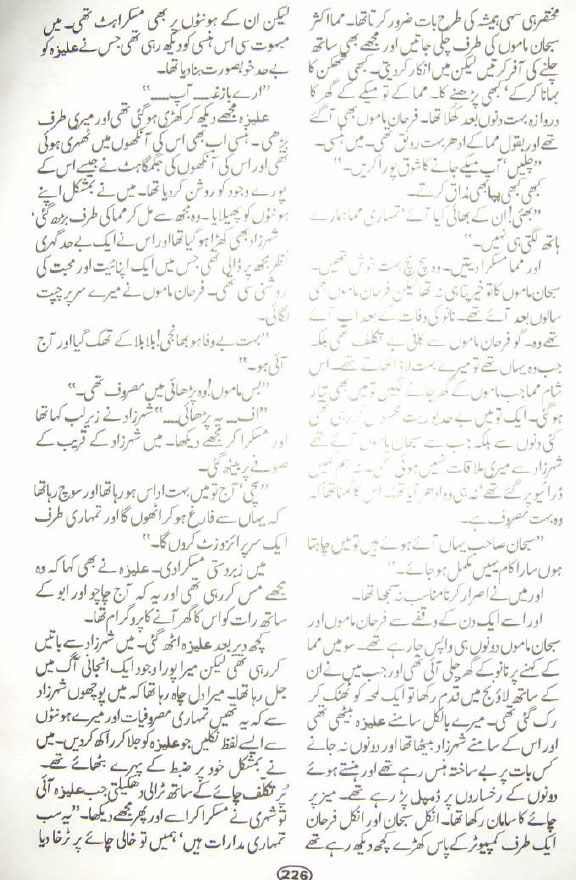 مختصر ہی سہی ہمیشہ کی طرح بات ضرور کرتا تھا۔ مما اکثر
سبحان ماموں کی طرف چلی جاتیں اور مجھے بھی ساتھ
چلنے کی آفر کرتیں لیکن میں انکار کر دیتی۔ کبھی تھکن کا
بہانا کر کے' کبھی پڑھنے کا۔ مما کے تو میکے کے گھر کا
دروازہ بہت دنوں بعد کھلا تھا۔ فرحان ماموں بھی آ گئے
تھے اور بقول مما کے ادھر بہت رونق تھی۔ میں ہنسی۔
"چلیں' آپ میکے جانے کا شوق پورا کریں۔"
کبھی کبھی پپا بھی مذاق کرتے۔
"بھئی! ان کے بھائی کیا آئے' تمہاری مما ہمارے
ہاتھ لگتی ہی نہیں۔"
اور مما مسکرا دیتیں۔ وہ سچ مچ بہت خوش تھیں۔
سبحان ماموں کا تو خیر پتا ہی نہ تھا لیکن فرحان ماموں بھی
سالوں بعد آئے تھے۔ نانو کی وفات کے بعد اب آئے
تھے وہ۔ گو فرحان ماموں سے کافی بے تکلف تھی بلکہ
جب وہ یہاں تھے تو میرے بہت لاڈ اٹھاتے تھے۔ اس
شام مما جب ماموں کے گھر جانے لگیں تو میں بھی تیار
ہو گئی۔ ایک تو میں بے حد بوریت محسوس کر رہی تھی
کئی دنوں سے بلکہ جب سے سبحان ماموں آئے تھے
شہرزاد سے میری ملاقات نہیں ہوئی تھی۔ نہ ہم کہیں
ڈرائیو پر گئے تھے' نہ ہی وہ ادھر آیا تھا۔ اس کا کہنا تھا کہ
وہ بہت مصروف ہے۔
"سبحان صاحب یہاں آئے ہوئے ہیں تو میں چاہتا
ہوں سارا کام یہیں مکمل ہو جائے۔"
اور میں نے اصرار کرنا مناسب نہ سمجھا تھا۔
اور اسے ایک دن کے وقفے سے فرحان ماموں اور
سبحان ماموں دونوں ہی واپس جا رہے تھے۔ سو میں مما
کے کہنے پر نانو کے گھر چلی آئی تھی اور جب میں نے ان
کے ساتھ لاؤنج میں قدم رکھا تو ایک لمحہ کو ٹھٹک کر
رک گئی تھی۔ میرے بالکل سامنے علیزہ بیٹھی تھی
اور اس کے سامنے شہرزاد بیٹھا تھا اور دونوں نہ جانے
کس بات پر بے ساختہ ہنس رہے تھے اور ہنستے ہوئے
دونوں کے رخساروں پر ڈمپل پڑ رہے تھے۔ میز پر
چائے کا سامان رکھا تھا۔ انکل سبحان اور انکل فرحان
ایک طرف کمپیوٹر کے پاس کھڑے کچھ دیکھ رہے تھے
لیکن ان کے ہونٹوں پر بھی مسکراہٹ تھی۔ میں
مبہوت سی اس ہنسی کو دیکھ رہی تھی جس نے علیزہ کو
بے حد خوبصورت بنا دیا تھا۔
"ارے بازغہ۔۔۔ آپ۔۔۔۔"
علیزہ مجھے دیکھ کر کھڑی ہو گئی تھی اور میری طرف
بڑھی۔ ہنسی اب بھی اس کی آنکھوں میں ٹھہری ہوئی
تھی اور اس کی آنکھوں کی جگمگاہٹ نے جیسے اس کے
پورے وجود کو روشن کر دیا تھا۔ میں نے بمشکل اپنے
ہونٹوں کو پھیلایا۔ وہ مجھ سے مل کر مما کی طرف بڑھ گئی'
شہرزاد بھی کھڑا ہو گیا تھا اور اس نے ایک بے حد گہری
نظر مجھ پر ڈالی تھی جس میں ایک اپنائیت اور محبت کی
روشنی سی تھی۔ فرحان ماموں نے میرے سر پر چپت
لگائی۔
"بہت بے وفا ہو بھانجی! بلا بلا کے تھک گیا اور آج
آئی ہو۔"
"بس ماموں! وہ پڑھائی میں مصروف تھی۔"
"اف۔۔۔ یہ پڑھائی۔۔۔۔" شہرزاد نے زیر لب کہا تھا
اور مسکرا کر مجھے دیکھا۔ میں شہرزاد کے قریب کے
صوفے پر بیٹھ گئی۔
"سچی' آج تو میں بہت اداس ہو رہا تھا اور سوچ رہا تھا
کہ یہاں سے فارغ ہو کر اٹھوں گا اور تمہاری طرف
ایک سرپرائز وزٹ کروں گا۔"
میں زبردستی مسکرا دی۔ علیزہ نے بھی کہا کہ وہ
مجھے مس کر رہی تھی اور یہ کہ آج چاچو اور ابو کے
ساتھ رات کو اس کا گھر آنے کا پروگرام تھا۔
کچھ دیر بعد علیزہ اٹھ گئی۔ میں شہرزاد سے باتیں
کر رہی تھی لیکن میرا پورا وجود ایک انجانی آگ میں
جل رہا تھا۔ میرا دل چاہ رہا تھا کہ میں پوچھوں شہرزاد
سے کہ یہ تھیں تمہاری مصروفیات اور میرے ہونٹوں
سے ایسے لفظ نکلیں جو علیزہ کو جلا کر راکھ کر دیں۔ میں
نے بمشکل خود پر ضبط کے پہرے بٹھائے تھے۔
پر تکلف چائے کے ساتھ ٹرالی دھکیلتی جب علیزہ آئی
تو شہری نے مسکرا کر اسے اور پھر مجھے دیکھا۔ "یہ سب
تمہاری مدارات ہیں' ہمیں تو خالی چائے پر ٹرخا دیا
226